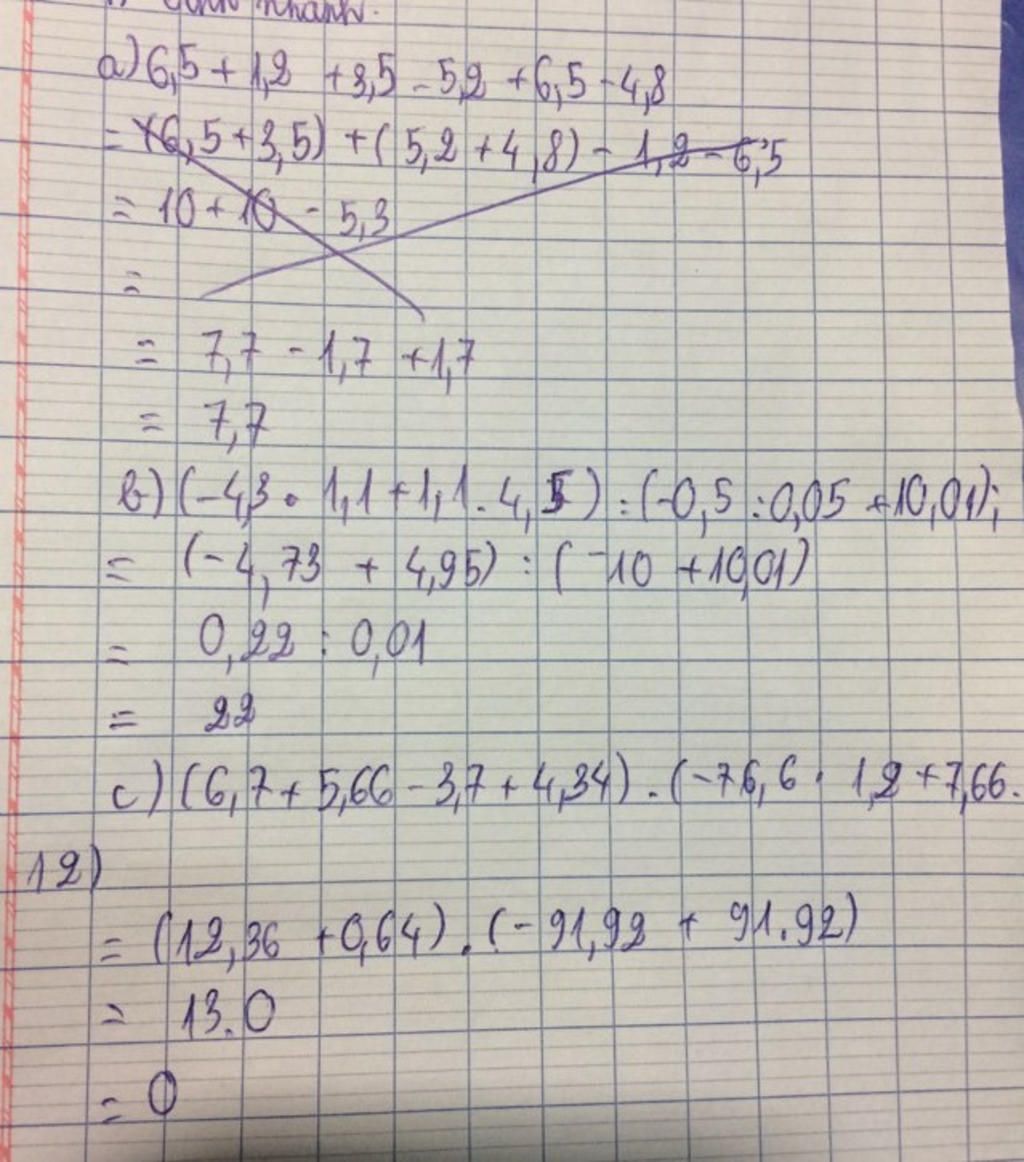 a) 6,5 + 1,2 + 3,5 - 5,2 + 6,5 - 4,8
= (6,5 + 3,5) + (5,2 + 4,8) - 1,2 - 6,5
= 10 + 10 - 5,3
=
= 7,7 - 1,7 + 1,7
= 7,7
b) (-4,3 . 1,1 + 1,1 . 4,5) : (-0,5 : 0,05 + 10,01);
= (-4,73 + 4,95) : (-10 + 10,01)
= 0,22 : 0,01
= 22
c) (6,7 + 5,66 - 3,7 + 4,34) . (-76,6 . 1,2 + 7,66 .
12)
= (12,36 + 0,64) . (-91,92 + 91.92)
= 13.0
= 0